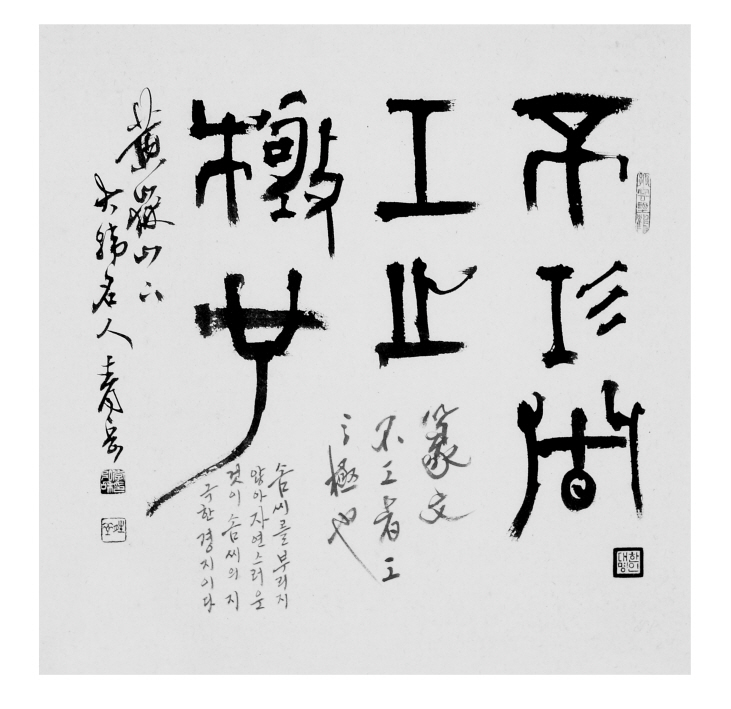 不工者
工之
極也
篆文
不工者工
之極也
솜씨를 부리지
않아 자연스러운
것이 솜씨의 지
극한 경지이다
黃嶽山下
大韓名人 靑岳
대한
명인